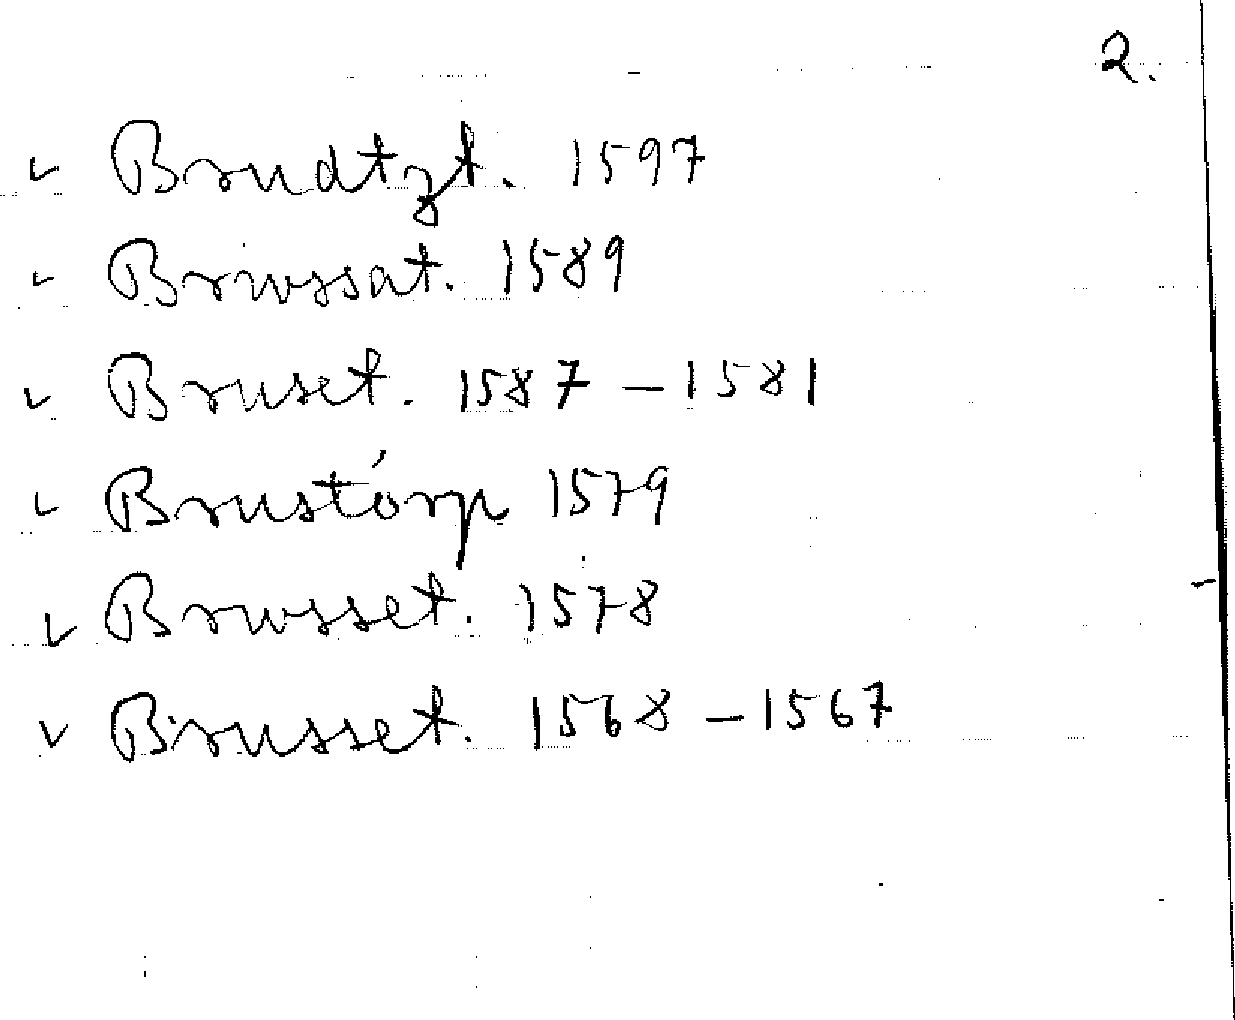 2.
✓ Brudtzt. 1597
✓ Briwssat. 1589
✓ Bruset. 1587 – 1581
✓ Brustórp 1579
✓ Brwsset. 1578
✓ Brusset. 1568 – 1567